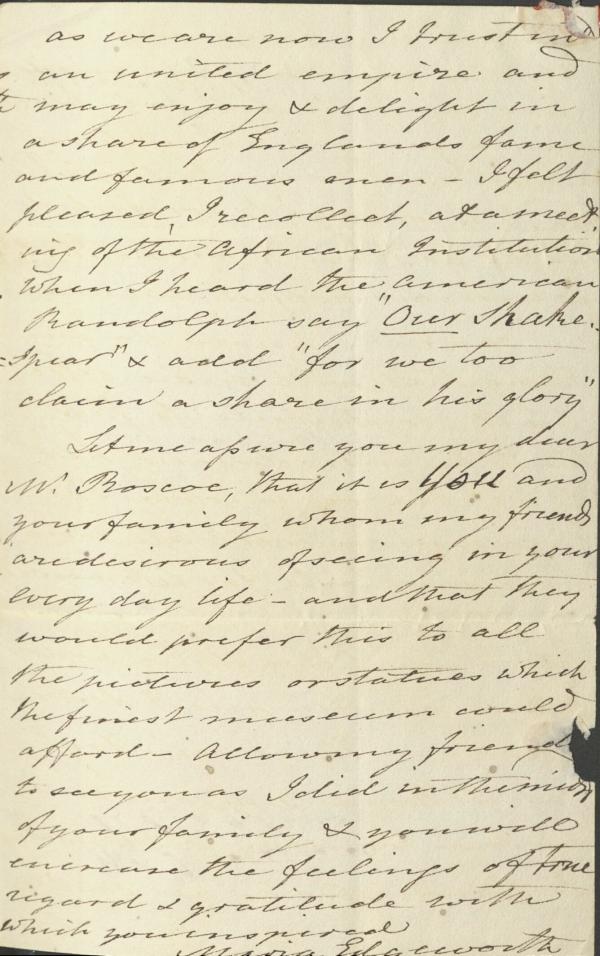 as we are now I trust in
an united empire and
may enjoy & delight in
a share of Englands fame
and famous men - I felt
pleased, I recollect, at a meet
ing of the African Institution
when I heard the American
Randolph say "Our Shake-
spear" & add "for we too
claim a share in his glory"
Let me assure you my dear
Mr. Roscoe, that it is you and
your family whom my friends
are desirous of seeing in your
every day life - and that they
would prefer this to all
the pictures or statues which
the finest museum could
afford - Allow my friends
to see you as I did in the midst
of your family & you will
increase the feelings of true
regard & gratitude with
which you inspired
Maria Edgeworth